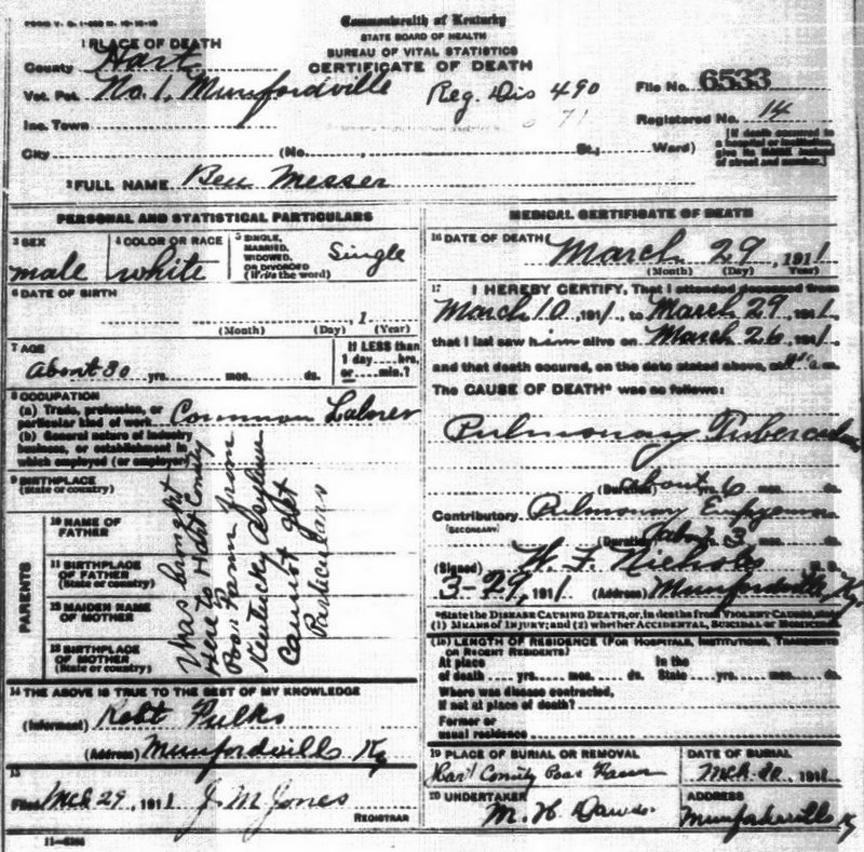 Commonwealth of Kentucky
STATE BOARD OF HEALTH
BUREAU OF VITAL STATISTICS
CERTIFICATE OF DEATH
1 PLACE OF DEATH
County Hart
Vot. Pct. No. 1, Munfordville Reg. Dis 490
File No. 6533
Inc. Town
Registered No. 14
City (No. , St.; Ward)
[If death occurred in a hospital or institution, give its NAME instead of street and number.]
2 FULL NAME Ben Messer
PERSONAL AND STATISTICAL PARTICULARS
3 SEX male
4 COLOR OR RACE white
5 SINGLE, MARRIED, WIDOWED, OR DIVORCED (Write the word) Single
6 DATE OF BIRTH
, 1
(Month) (Day) (Year)
7 AGE
About 30 yrs. mos. ds.
If LESS than 1 day hrs. or min.?
8 OCCUPATION
(a) Trade, profession, or particular kind of work Common Laborer
(b) General nature of industry business, or establishment in which employed (or employer)
9 BIRTHPLACE
(State or country)
PARENTS
10 NAME OF FATHER
11 BIRTHPLACE OF FATHER
(State or country)
12 MAIDEN NAME OF MOTHER
13 BIRTHPLACE OF MOTHER
(State or country)
Was brought
Here to Hart County
Poor Farm from
Kentucky Asylum
Cannot get
Particulars
14 THE ABOVE IS TRUE TO THE BEST OF MY KNOWLEDGE
(Informant) Robt Fulks
(Address) Munfordville Ky
15
Filed Mch 29, 1911 J. M Jones
REGISTRAR
MEDICAL CERTIFICATE OF DEATH
16 DATE OF DEATH
March 29, 1911
(Month) (Day) (Year)
17 I HEREBY CERTIFY, That I attended deceased from
March 10, 1911, to March 29, 1911
that I last saw him alive on March 26, 1911
and that death occured, on the date stated above, at m.
The CAUSE OF DEATH* was as follows:
Pulmonary Tuberculosis
(Duration) about yrs. 6 mos. ds.
Contributory Pulmonary Empyema
(SECONDARY)
(Duration) about 3
(Signed) W. F. Nichols
3-29, 1911 (Address) Munfordville, Ky
*State the DISEASE CAUSING DEATH, or, in deaths from VIOLENT CAUSES, state
(1) MEANS OF INJURY; and (2) whether ACCIDENTAL, SUICIDAL or HOMICIDAL
LENGTH OF RESIDENCE (FOR HOSPITALS, INSTITUTIONS, TRANSIENTS OR RECENT RESIDENTS)
At place of death yrs. mos. ds. In the State yrs. mos. ds.
Where was disease contracted,
if not at place of death?
Former or
usual residence
19 PLACE OF BURIAL OR REMOVAL
Hart County Poor Farm
DATE OF BURIAL
Mch 30, 1911
20 UNDERTAKER
M. H. Davis
ADDRESS
Munfordville Ky